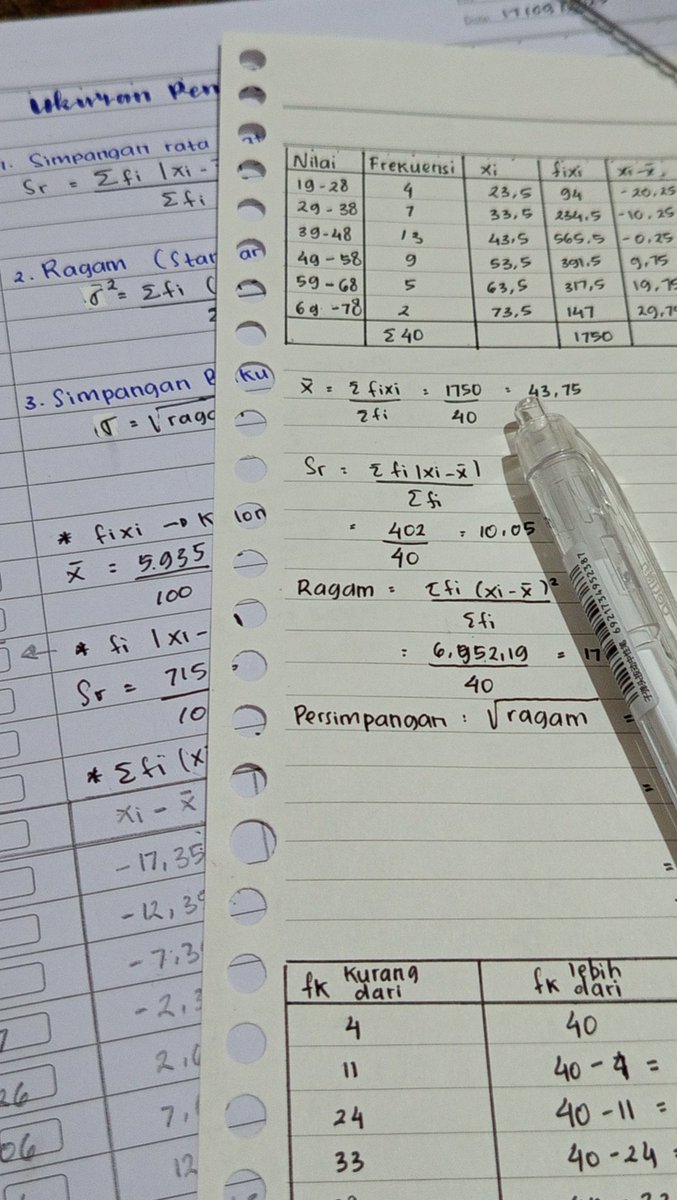 17/09
ukuran Pen
1. Simpangan rata
Sr = Σfi |xi -
Σfi
2. Ragam (Star
σ² = Σfi (
3. Simpangan B
σ = √raga
* fixi → K
x̄ = 5.935
100
* fi |xi -
Sr = 715
10
* Σfi (x
xi - x̄
-17,35
-12,3
-7,3
-2,3
2,
7,
12
26
06
an
ku
ion
Nilai Frekuensi xi fixi xi-x̄
19-28 4 23,5 94 -20,25
29-38 7 33,5 234,5 -10,25
39-48 13 43,5 565,5 -0,25
49-58 9 53,5 391,5 9,75
59-68 5 63,5 317,5 19,75
69-78 2 73,5 147 29,7
Σ40 1750
x̄ = Σfixi = 1750 = 43,75
Σfi 40
Sr = Σfi |xi-x̄|
Σfi
= 402 = 10,05
40
Ragam = Σfi (xi-x̄)²
Σfi
= 6.952,19 = 17
40
Persimpangan = √ragam
6921734952387
fk Kurang dari fk lebih dari
4 40
11 40-4 =
24 40-11 =
33 40-24